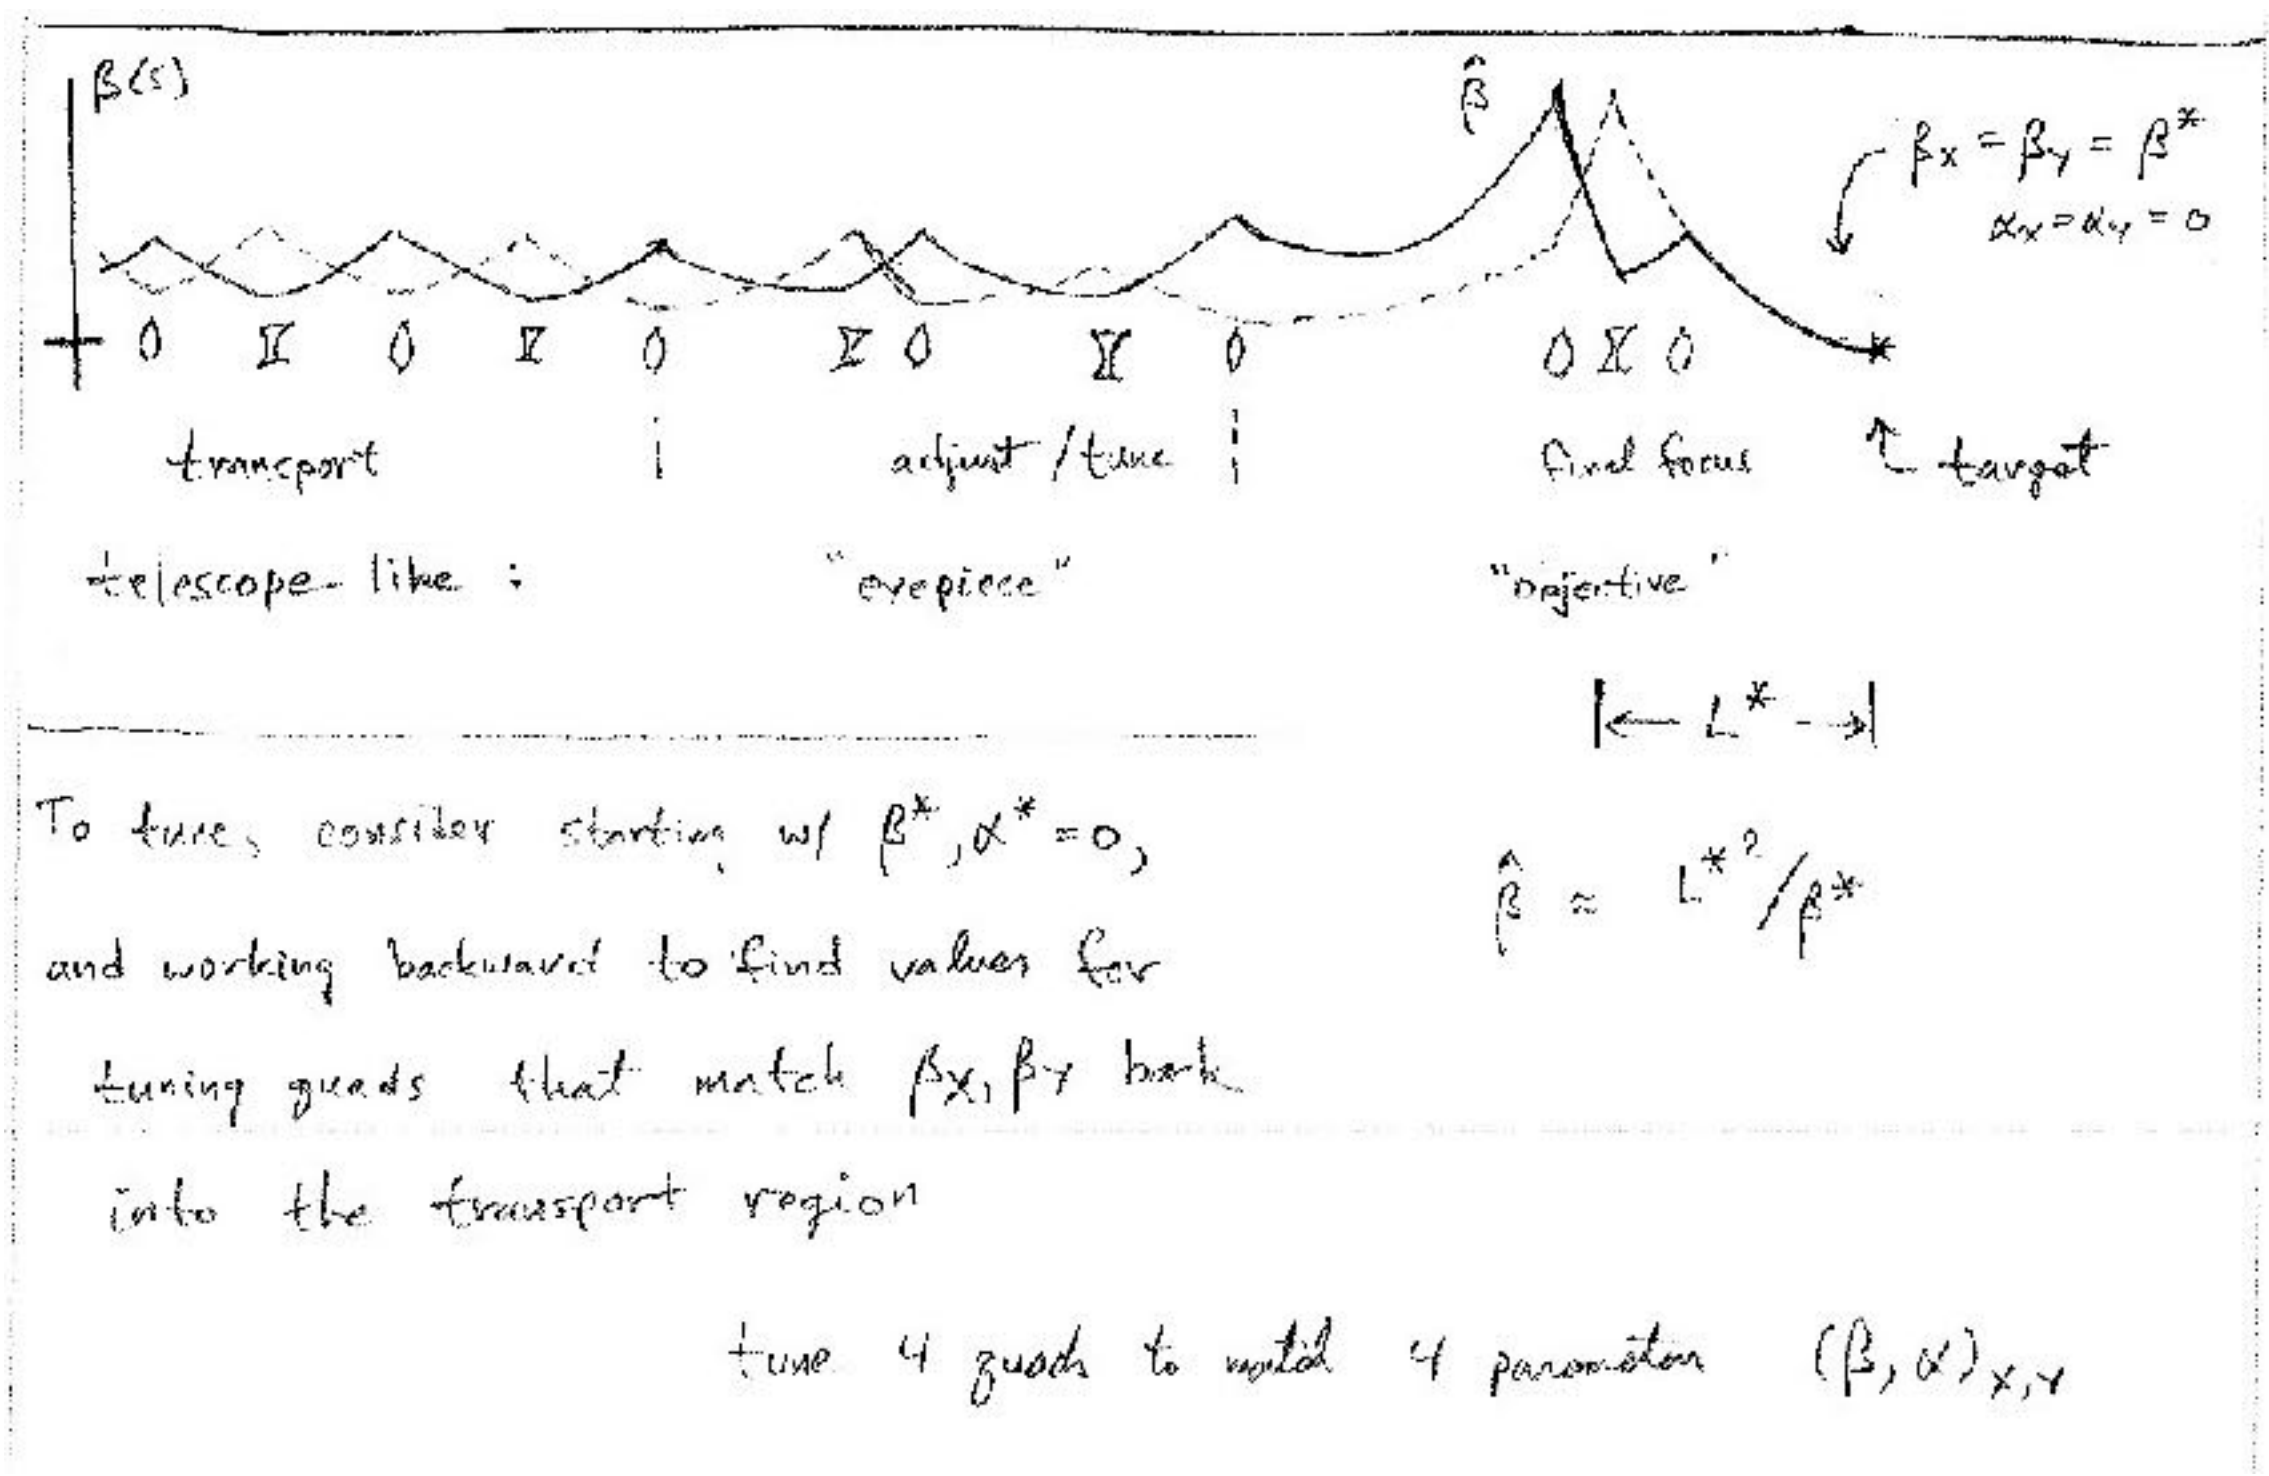 β(s)
β̂
βx = βy = β*
αx = αy = 0
transport
adjust / tune
final focus
target
telescope-like :
"eyepiece"
"objective"
|← L* →|
To tune, consider starting w/ β*, α* = 0,
and working backward to find values for
tuning quads that match βx, βy back
into the transport region
β̂ ≈ L*²/β*
tune 4 quads to match 4 parameters (β, α)x,y